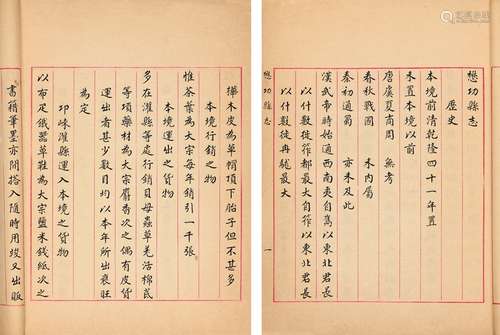 懋功縣志
歷史
本境前清乾隆四十一年置
未置本境以前
唐虞夏商周 無考
春秋戰國 未內屬
秦初通蜀 亦未及此
漢武帝時始通西南夷自嶲以東北君長
以什數徙筰都最大自筰以東北君長
以什數徙冉駹最大
懋功縣志 一
樺木皮為草帽項下胎子但不甚多
本境行銷之物
惟茶葉為大宗每年銷引一千張
本境運出之貨物
多在灌縣等處行銷貝母蟲草羌活棉芪
等項藥材為大宗麝香次之偶有皮貨
運出者甚少數目均以本年所出衰旺
為定
邛崍灌縣運入本境之貨物
以布疋鐵器草鞋為大宗鹽米錢紙次之
書籍筆墨亦間搭入隨時用竣又出販